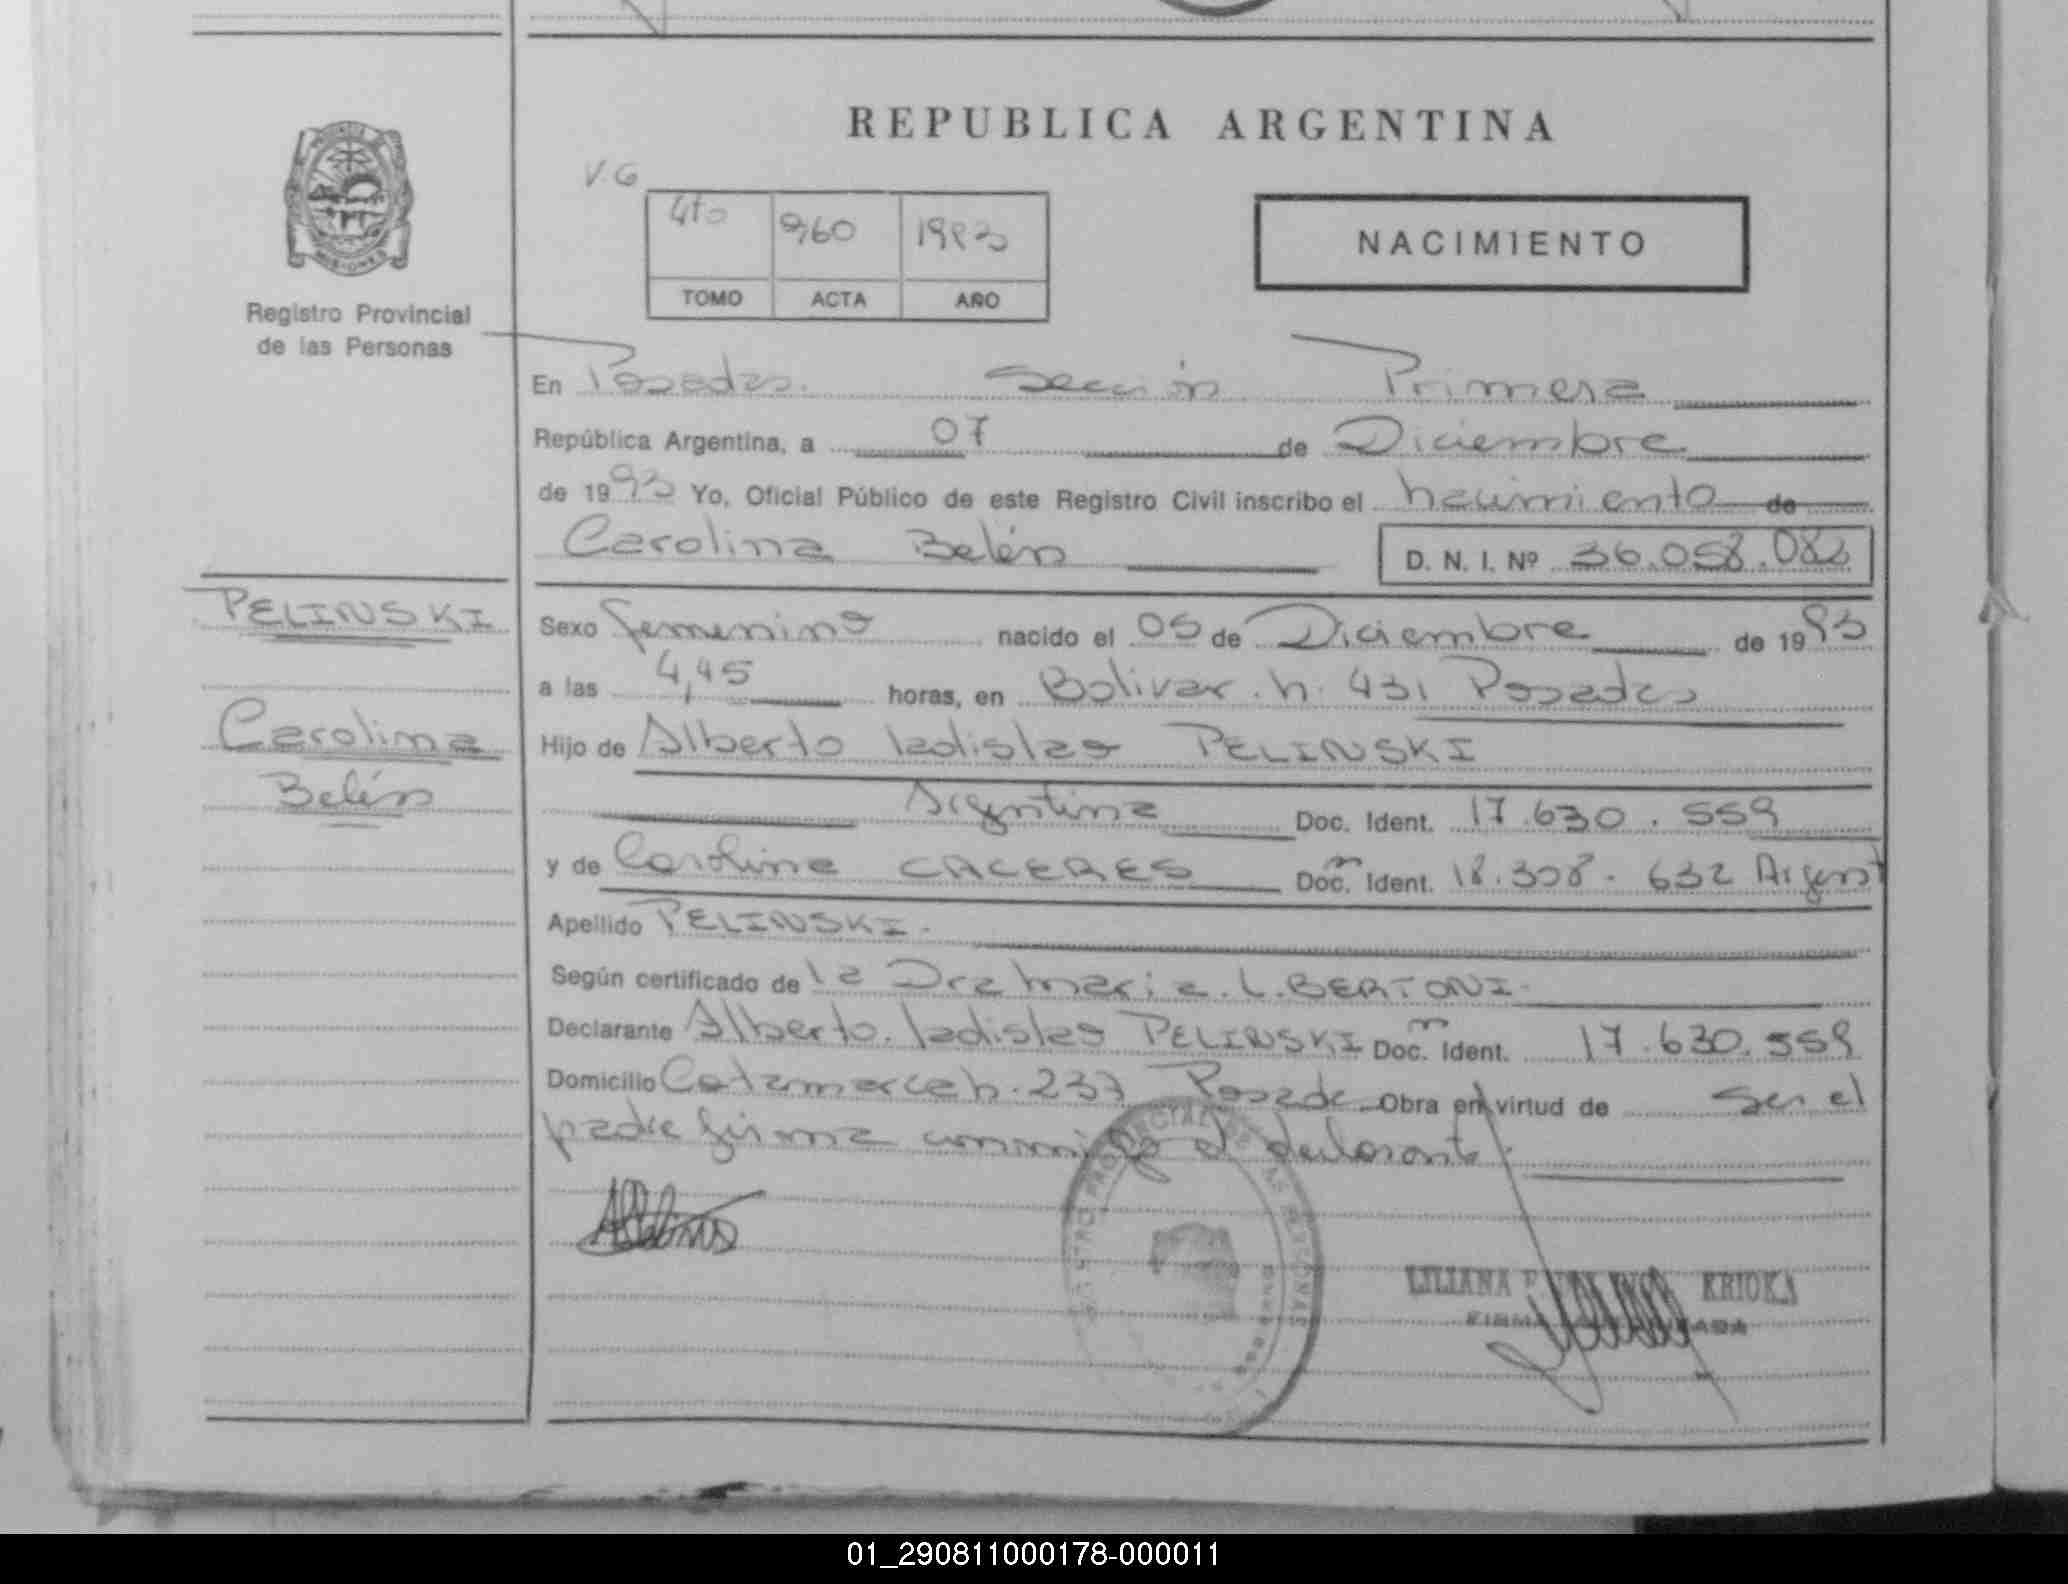 REPUBLICA ARGENTINA
V.G
4to 960 1993
TOMO ACTA AÑO
NACIMIENTO
MISIONES
Registro Provincial
de las Personas
En Posadas. Sección Primera
República Argentina, a 07 de Diciembre
de 1993 Yo, Oficial Público de este Registro Civil inscribo el nacimiento de
Carolina Belén D. N. I. Nº 36.058.083
PELINSKI
Carolina
Belén
Sexo femenino nacido el 05 de Diciembre de 1993
a las 4,45 horas, en Bolivar. n. 431 Posadas
Hijo de Alberto ladislao PELINSKI
Argentina Doc. Ident. 17.630.559
y de Carolina CACERES Doc. Ident. 18.308.632 Argent
Apellido PELINSKI.
Según certificado de la Dra maria. L. BERTONI.
Declarante Alberto. ladislao PELINSKI Doc. Ident. 17.630.559
Domicilio Catamarca n. 237 Posadas Obra en virtud de Ser el
padre firma conmigo el declarante.
LILIANA KRIOKA
01_290811000178-000011